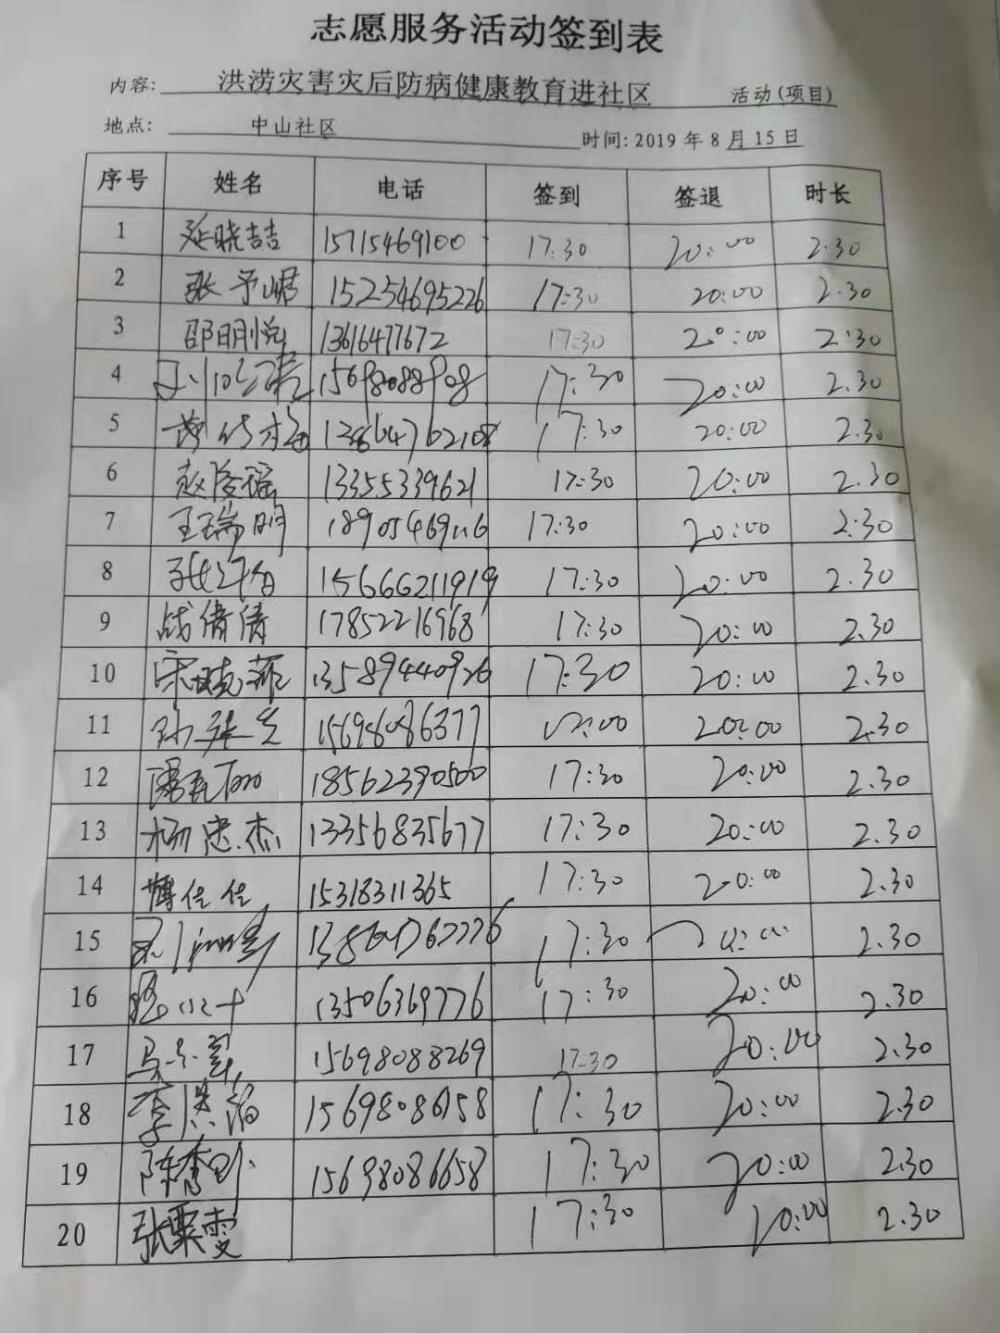 志愿服务活动签到表
内容: 洪涝灾害灾后防病健康教育进社区 活动(项目)
地点: 中山社区 时间: 2019 年 8 月 15 日
序号 姓名 电话 签到 签退 时长
1 延晓喆 15715469100 17:30 20:00 2.30
2 张予崌 15254695226 17:30 20:00 2.30
3 邵明悦 13616477672 17:30 20:00 2:30
4 15698088908 17:30 20:00 2.30
5 17:30 20:00 2.30
6 13355339621 17:30 20:00 2.30
7 王瑞明 17:30 20:00 2.30
8 15666211919 17:30 20:00 2.30
9 战倩倩 17852216968 17:30 20:00 2.30
10 宋晓菲 13589440926 17:30 20:00 2.30
11 15698086377 20:00 2.30
12 18562390500 17:30 20:00 2.30
13 杨忠杰 13356835677 17:30 20:00 2.30
14 佳佳 15318311365 17:30 20:00 2.30
15 17:30 2.30
16 13506369776 17:30 20:00 2.30
17 15698088269 17:30 20:00 2.30
18 17:30 20:00 2.30
19 15698086658 17:30 20:00 2.30
20 张粟雯 17:30 20:00 2.30